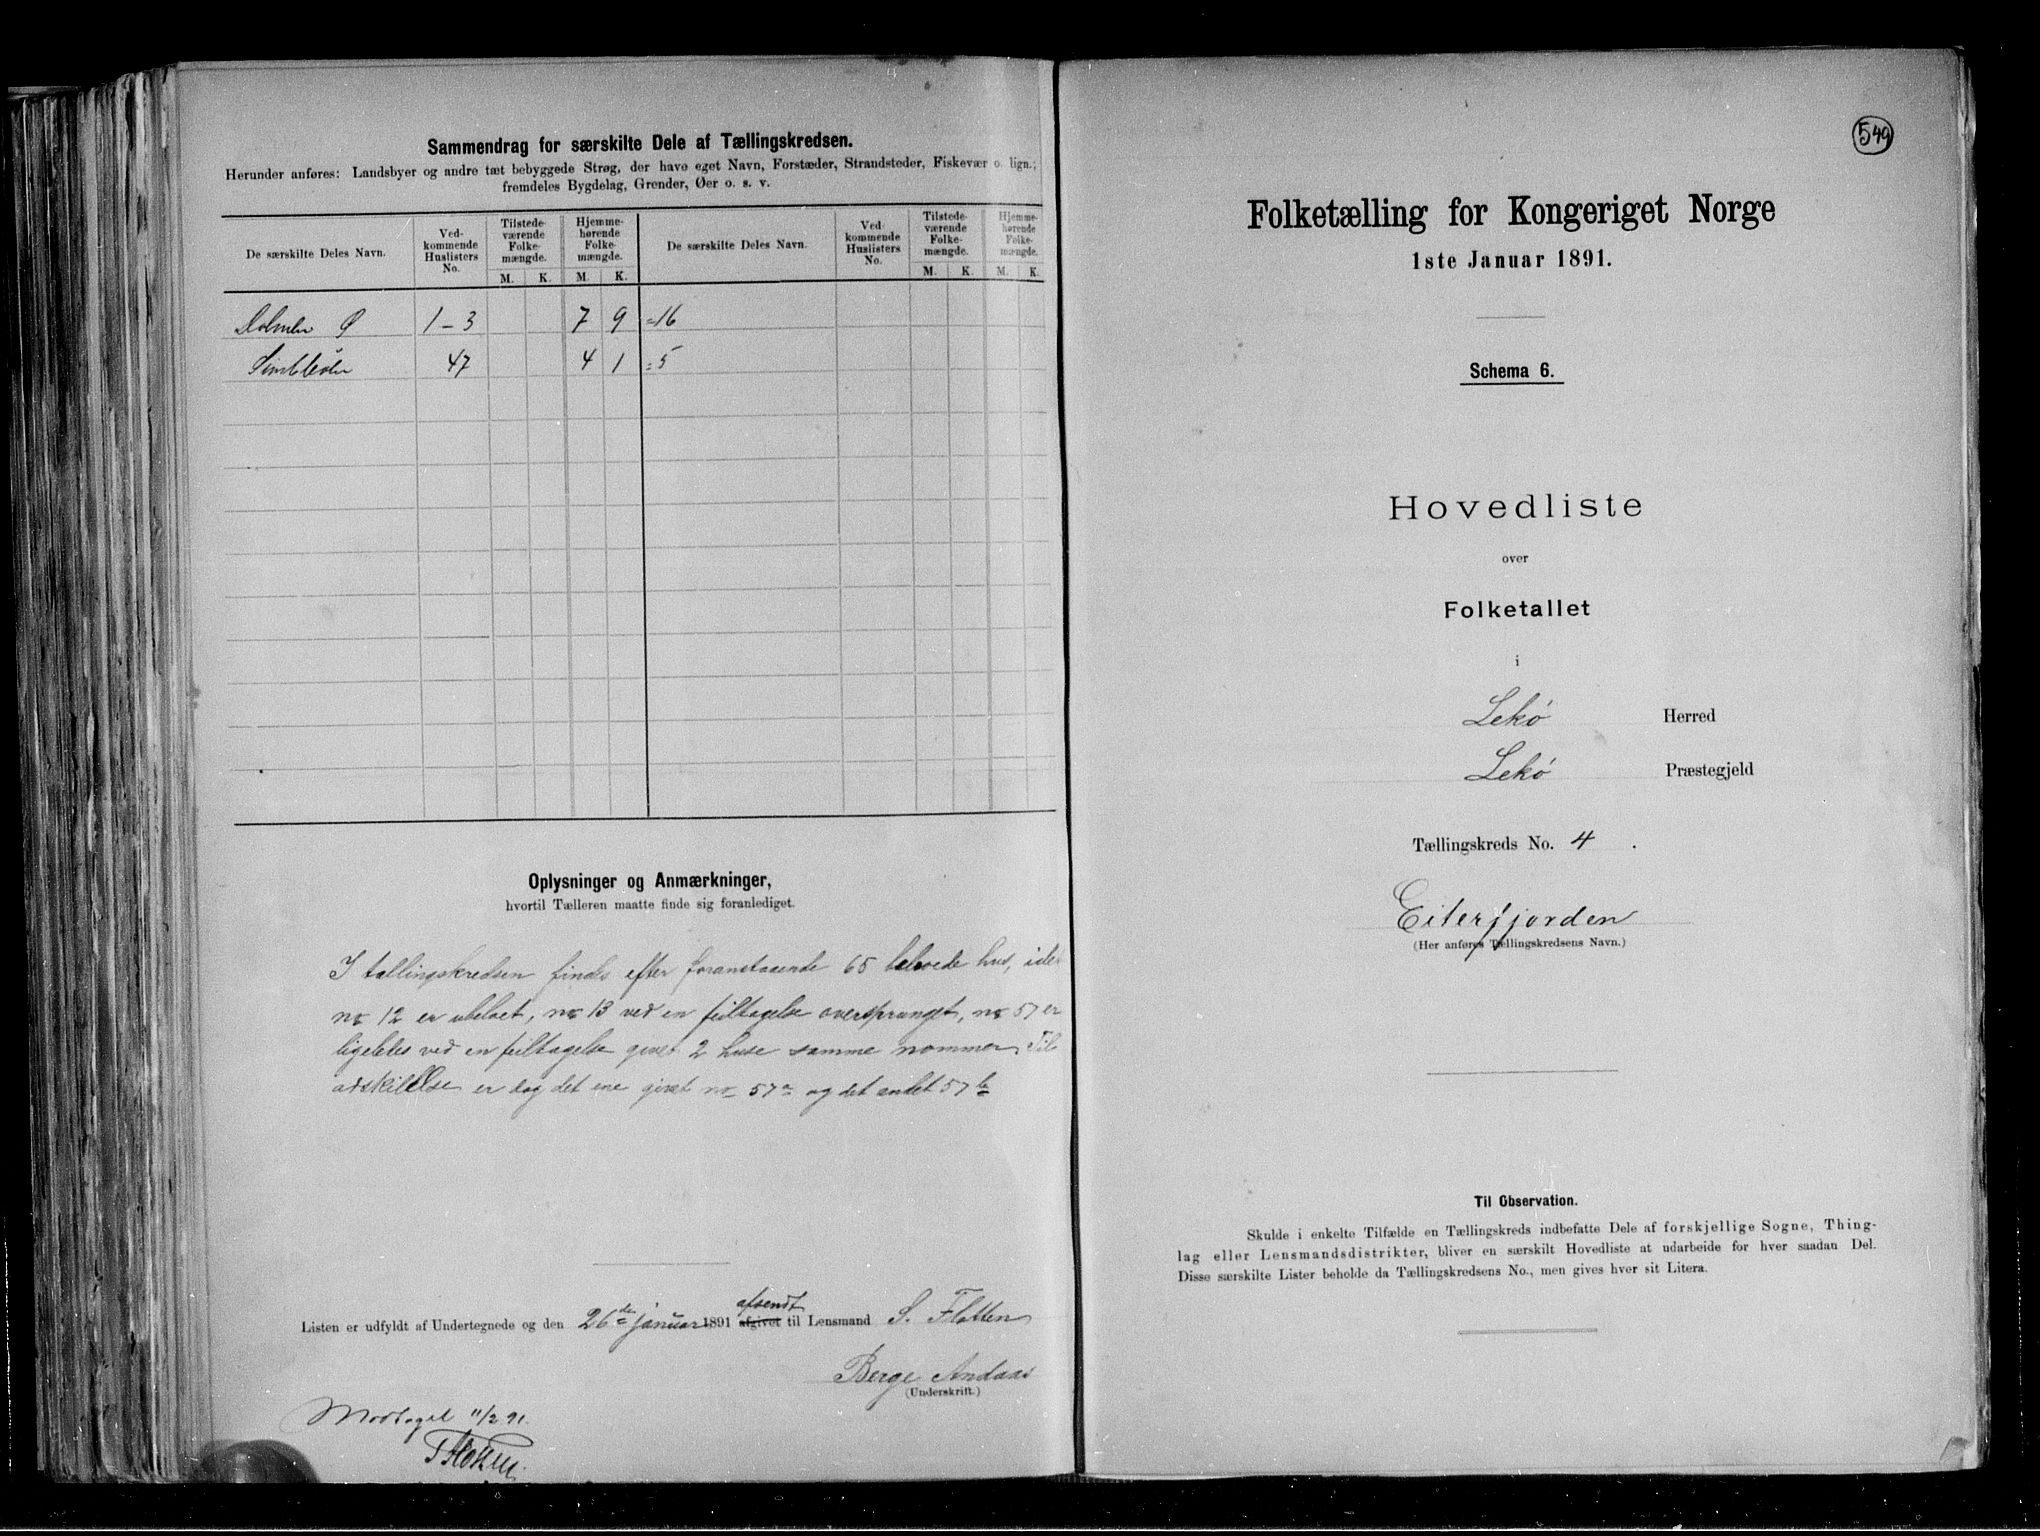 Sammendrag for særskilte Dele af Tællingskredsen.
Herunder anføres: Landsbyer og andre tæt bebyggede Strøg, der have eget Navn, Forstæder, Strandsteder, Fiskevær o. lign.;
fremdeles Bygdelag, Grender, Øer o. s. v.
De særskilte Deles Navn.
Ved-
kommende
Huslisters
No.
Tilstede-
værende
Folke-
mængde.
M. K.
Hjemme-
hørende
Folke-
mængde.
M. K.
De særskilte Deles Navn.
Ved-
kommende
Huslisters
No.
Tilstede-
værende
Folke-
mængde.
M. K.
Hjemme-
hørende
Folke-
mængde.
M. K.
Ø 1-3 7 9 =16
47 4 1 =5
Oplysninger og Anmærkninger,
hvortil Tælleren maatte finde sig foranlediget.
I tællingskredsen findes efter foranstaaende 65 beboede hus, idet
no 12 er ubeboet, no 13 ved en feiltagelse oversprunget, no 57 er
ligeledes ved en feiltagelse givet 2 huse samme nommer. Til
adskillelse er dog det ene givet no 57a og det andet 57b
Listen er udfyldt af Undertegnede og den 26de januar 1891 afgivet afsendt til Lensmand S. Flatten
Berge Andaas
(Underskrift.)
Modtaget 11/2 91.
549
Folketælling for Kongeriget Norge
1ste Januar 1891.
Schema 6.
Hovedliste
over
Folketallet
i
Lekø Herred
Lekø Præstegjeld
Tællingskreds No. 4.
Eiterfjorden
(Her anføres Tællingskredsens Navn.)
Til Observation.
Skulde i enkelte Tilfælde en Tællingskreds indbefatte Dele af forskjellige Sogne, Thing-
lag eller Lensmandsdistrikter, bliver en særskilt Hovedliste at udarbeide for hver saadan Del.
Disse særskilte Lister beholde da Tællingskredsens No., men gives hver sit Litera.